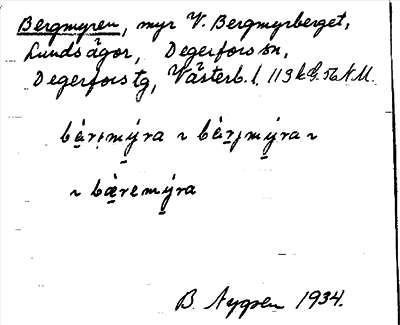 Bergmyren, myr V. Bergmyrberget,
Lunds ägor, Degerfors sn,
Degerfors tg, Västerb. l. 113 k G. 56 N M.
bàrmýra ~ bàrmýra ~
~ bæ̀remýra
B. Nygren 1934.